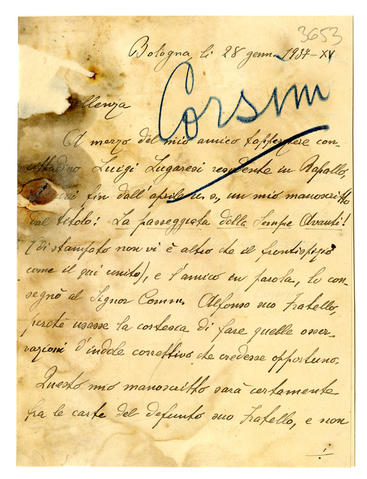 3653
Bologna li 28 genn. 1937-XV
Corsini
ellenza
A mezzo del mio amico tappezziere con-
cittadino Luigi Lugaresi residente in Rapallo,
fin dall'aprile u. s., un mio manoscritto
dal titolo: La passeggiata della Sempre Avanti!
(Di stampato non vi è altro che il frontispizio
come il qui unito), e l'amico in parola, lo con-
segnò al Signor Comm. Alfonso suo fratello,
perché usasse la cortesia di fare quelle osser-
vazioni d'indole correttivo che credesse opportuno.
Questo mio manoscritto sarà certamente
fra le carte del defunto suo fratello, e non